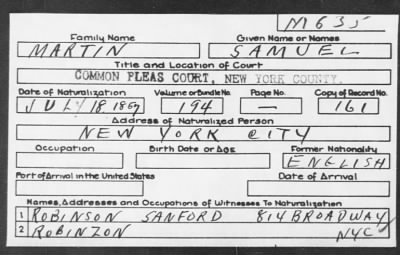 M635
Family Name Given Name or Names
MARTIN SAMUEL
Title and Location of Court
COMMON PLEAS COURT, NEW YORK COUNTY.
Date of Naturalization Volume or Bundle No. Page No. Copy of Record No.
JULY 18 1867 194 — 161
Address of Naturalized Person
NEW YORK CITY
Occupation Birth Date or Age Former Nationality
ENGLISH
Port of Arrival in the United States Date of Arrival
Names, Addresses and Occupations of Witnesses To Naturalization
1 ROBINSON SANFORD 814 BROADWAY
2 ROBINZON NYC